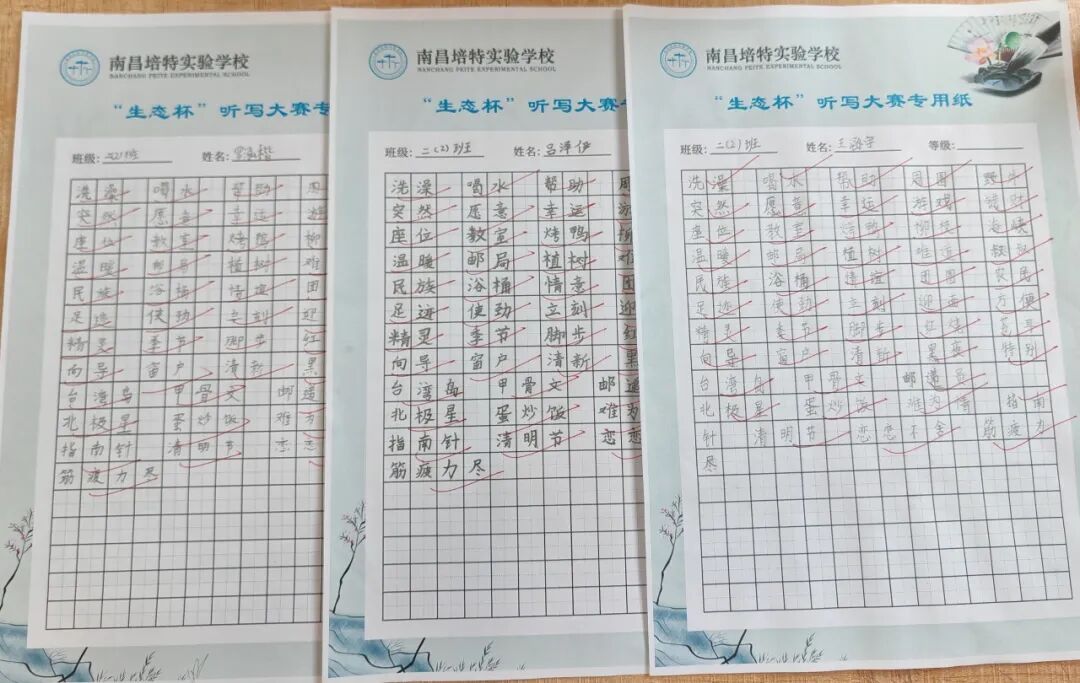 南昌培特实验学校
NANCHANG PEITE EXPERIMENTAL SCHOOL
“生态杯”听写大赛专
班级: 二(2)班 姓名:
洗澡 喝水 帮助 周
突然 愿意 幸运 游
座位 教室 烤鸭 柳
温暖 邮局 植树 难
民族 浴桶 情谊 团
足迹 使劲 立刻 迎
精灵 季节 脚步 红
向导 窗户 清新 黑
台湾岛 甲骨文 邮递
北极星 蛋炒饭 难为
指南针 清明节 恋恋
筋疲力尽
南昌培特实验学校
NANCHANG PEITE EXPERIMENTAL SCHOOL
“生态杯”听写大赛
班级: 二(2)班 姓名: 吕泽伊
洗澡 喝水 帮助 周
突然 愿意 幸运 游
座位 教室 烤鸭 柳
温暖 邮局 植树 难
民族 浴桶 情意 团
足迹 使劲 立刻 迎
精灵 季节 脚步 红
向导 窗户 清新 黑
台湾岛 甲骨文 邮递
北极星 蛋炒饭 难为
指南针 清明节 恋恋
筋疲力尽
南昌培特实验学校
NANCHANG PEITE EXPERIMENTAL SCHOOL
“生态杯”听写大赛专用纸
班级: 二(2)班 姓名: 王 宇 等级:
洗澡 喝水 帮助 周围 野牛
突然 愿意 幸运 游戏 猜财
座位 教室 烤鸭 柳 海峡
温暖 邮局 植树 难 叔叔
民族 浴桶 情谊 团圆 农民
足迹 使劲 立刻 迎 方便
精灵 季节 脚步 红
向导 窗户 清新 黑 特别
台湾岛 甲骨文 邮递员
北极星 蛋炒饭 难为情 指南
针 清明节 恋恋不舍 筋疲力
尽